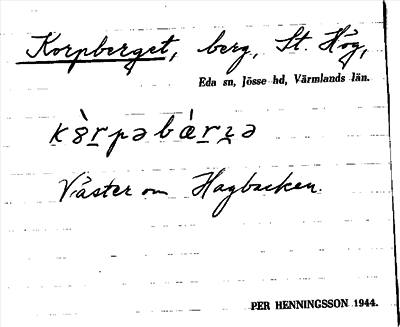 Korpberget, berg, St. Hög,
Eda sn, Jösse hd, Värmlands län.
Väster om Hagbacken.
PER HENNINGSSON 1944.